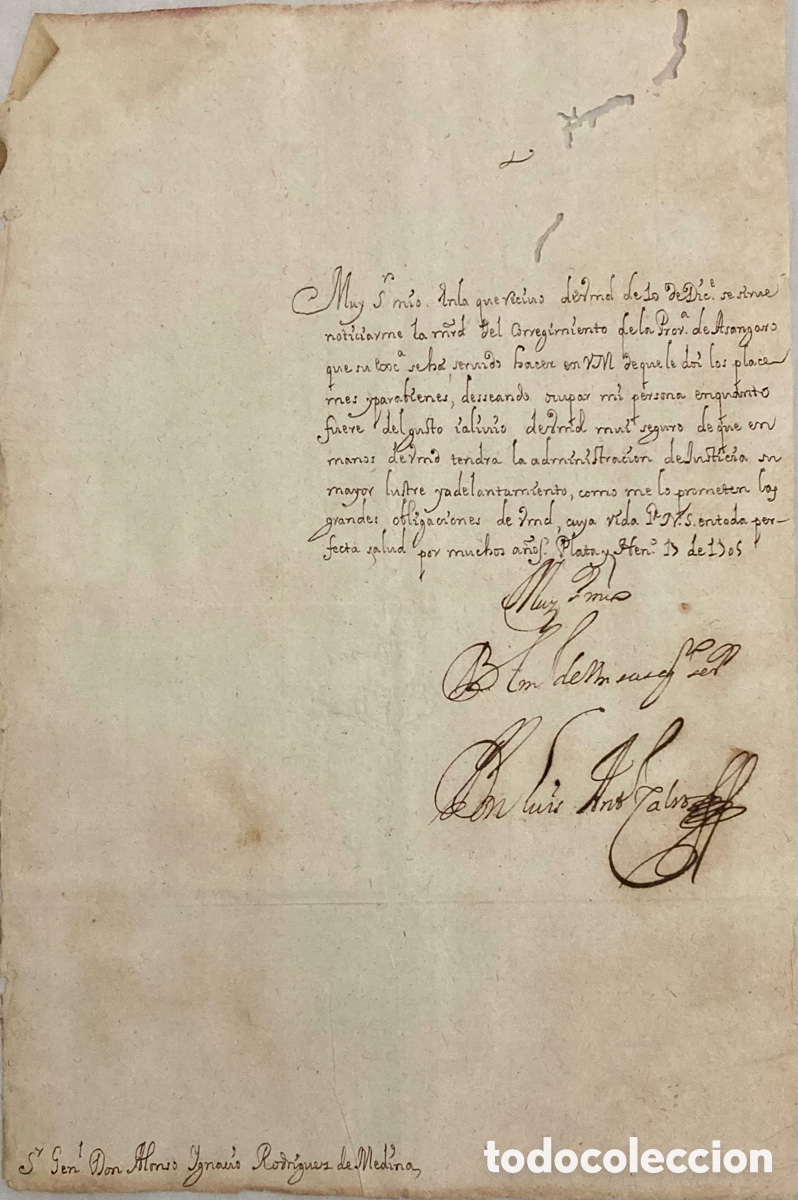 Muy Sr mio. En la que reciuo de Vmd de 10 de Dice. se sirue
noticiarme la mrd del Corregimiento de la Prova. de Asangaro
que su Exca. se ha seruido hacer en VM de que le doi los place-
mes y parabienes, desseando ocupar mi persona enquanto
fuere del gusto i aliuio de Vmd mui seguro de que en
manos de Vmd tendra la administracion de Justicia su
mayor lustre y adelantamiento, como me lo prometen las
grandes obligaciones de Vmd, cuya vida N. S. en toda per-
fecta salud por muchos años. Plata y Heno. de 1705
Muy Sr mio
B
Don Luis Anto Caluo
Sr Genl Don Alonso Ygnacio Rodriguez de Medina,
todocoleccion